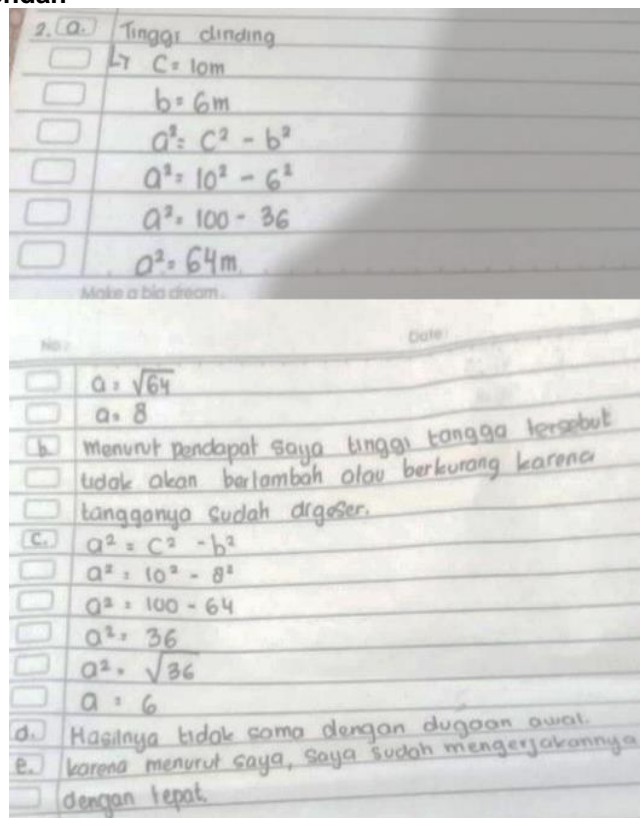 2. a. Tinggi dinding
↳ C = 10m
b = 6m
a² = C² - b²
a² = 10² - 6²
a² = 100 - 36
a² = 64m
Make a big dream
No :
Date :
a = √64
a = 8
b. menurut pendapat saya tinggi tangga tersebut
tidak akan bertambah atau berkurang karena
tangganya sudah digeser.
C. a² = C² - b²
a² = 10² - 8²
a² = 100 - 64
a² = 36
a² = √36
a = 6
d. Hasilnya tidak sama dengan dugaan awal.
e. karena menurut saya, saya sudah mengerjakannya
dengan tepat.